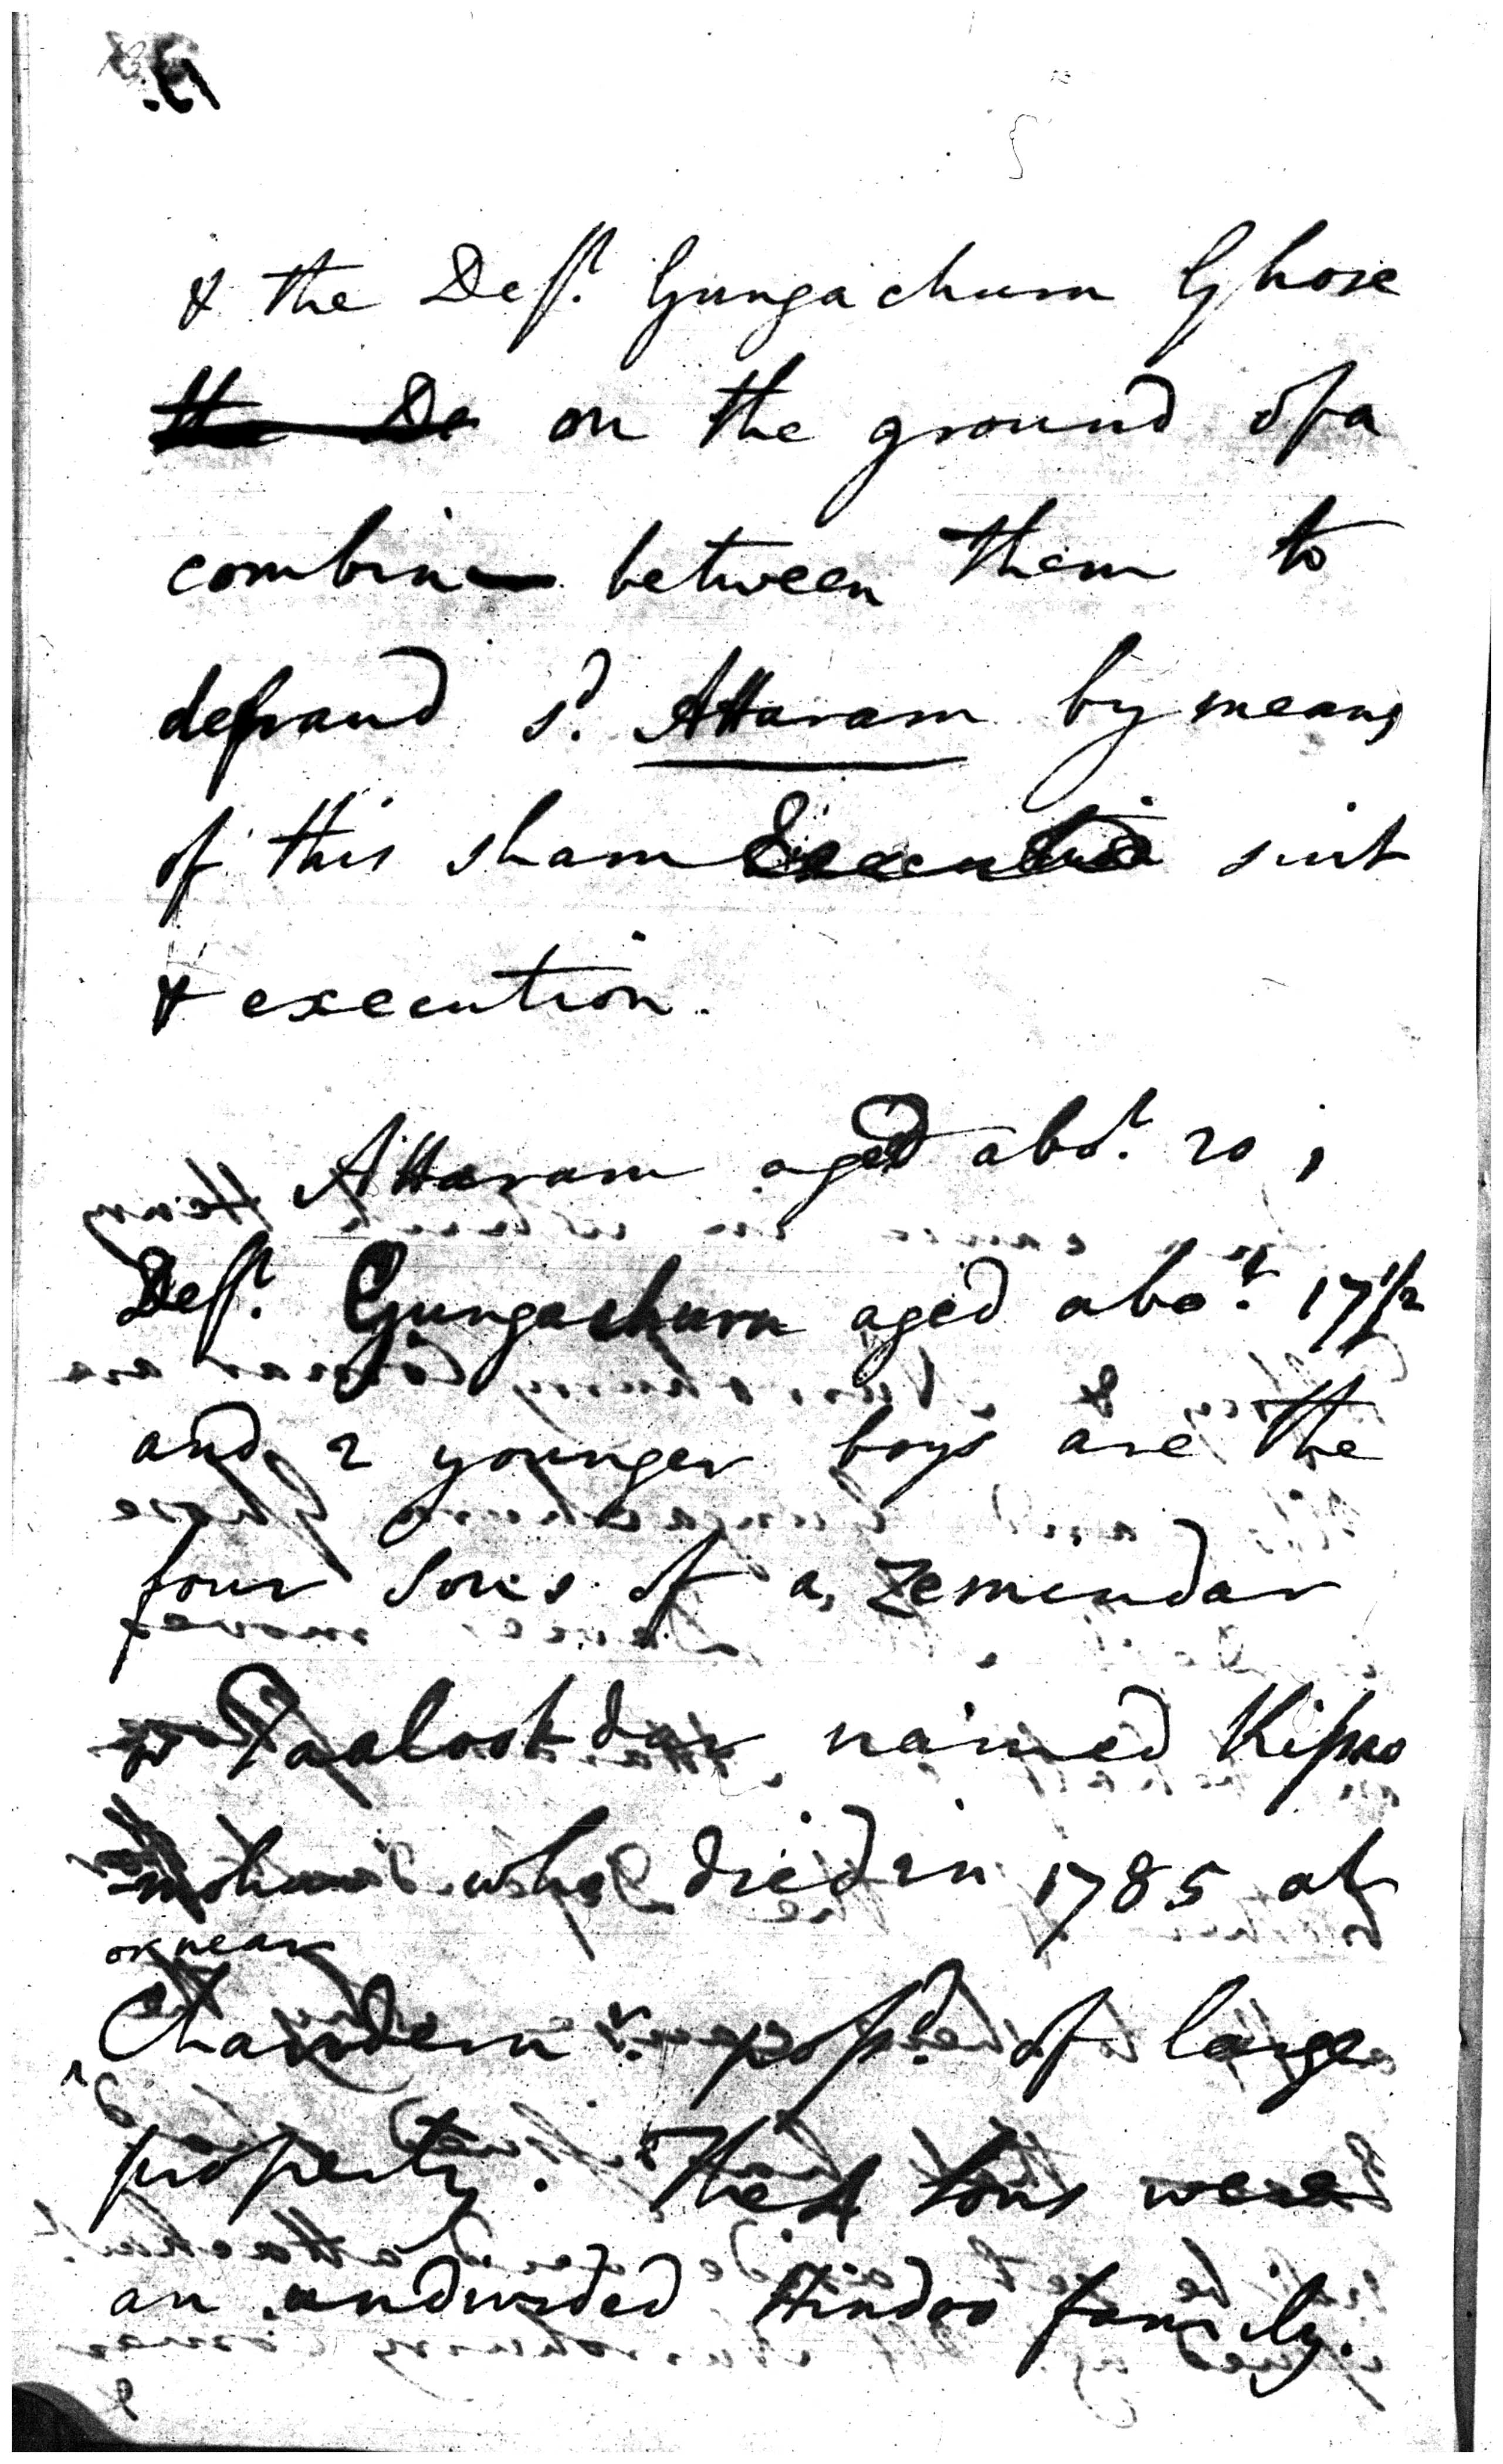 & the Deft. Gungachurn Ghose
on the ground of a
combin— between them to
defraud sd. Attaram by means
of this sham suit
& execution.
Attaram aged abot. 20,
Deft. Gungachurn aged abot. 17 1/2
and 2 younger boys are the
four sons of a Zemendar
or Taalookdar named Kipro
mohun who died in 1785 at
or near
Chandern r. possd. of large
property. The 4 sons were
an undivided Hindoo family.